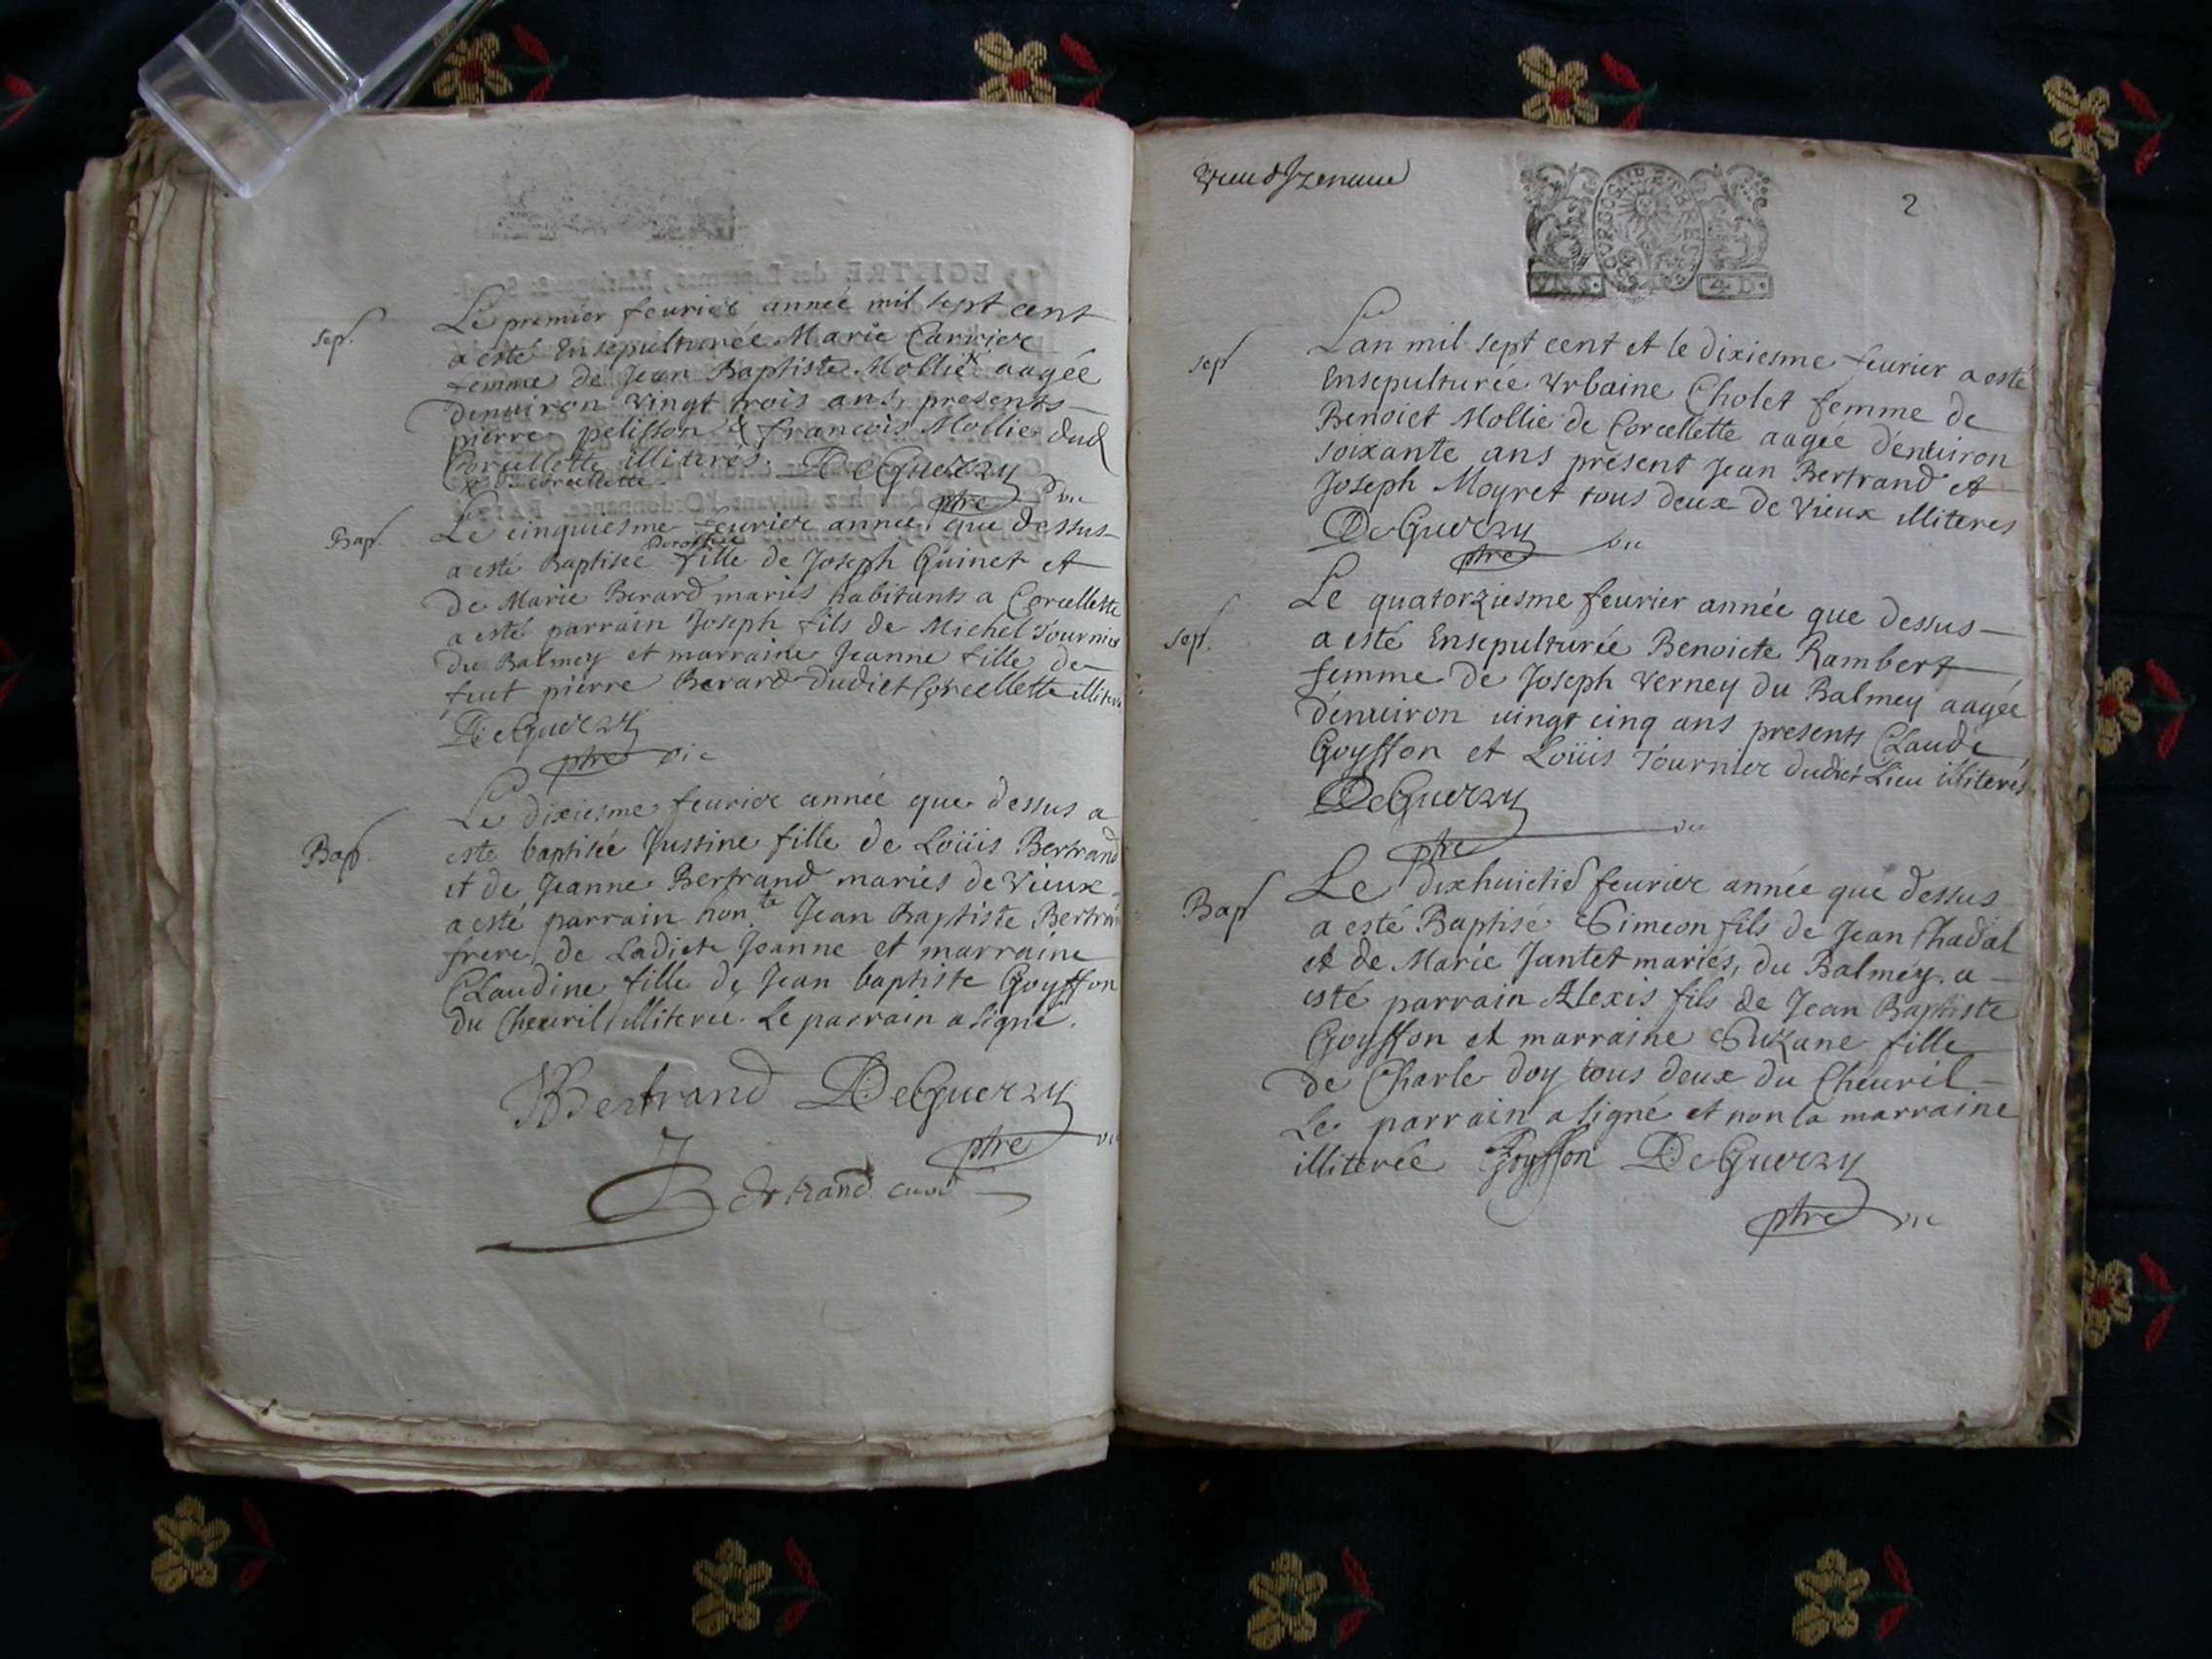 Sep.
Le premier feurier année mil sept cent
a esté Ensepulturée Marie Carrier
femme de Jean Baptiste Mollie aagée
denuiron vingt trois ans, presents
pierre pelisson & francois Mollie dud
Corcellette illiteres. DeGuerzy
de Corcellette
ptre vic
Bap.
Le cinquiesme feurier année que dessus
Dorothee
a esté Baptisée fille de Joseph Guinet et
de Marie Berard mariés habitants a Corcellette
a esté parrain Joseph fils de Michel Tournier
du Balmey et marraine Jeanne fille de
feut pierre Berard dudict Corcellette illiteres
DeGuerzy
ptre vic
Bap.
Le dixiesme feurier année que dessus a
esté baptisée Justine fille de Loüis Bertrand
et de Jeanne Bertrand mariés de Vieux
a esté parrain hon.te Jean Baptiste Bertrand
frere de Ladicte Jeanne et marraine
Claudine fille de Jean baptiste Goyffon
du Cheuril illiteree. Le parrain a signé.
JBBertrand DeGuerzy
ptre vic
Bertrand curé
2
GEN. BOURGOGNE ET BRESSE
4.D.
sep
Lan mil sept cent et le dixiesme feurier a esté
Ensepulturée Vrbaine Cholet femme de
Benoict Mollie de Corcellette aagée d'enuiron
soixante ans présent Jean Bertrand et
Joseph Moyret tous deux de Vieux illiteres
DeGuerzy
ptre vic
Sep.
Le quatorziesme feurier année que dessus
a esté Ensepulturée Benoicte Rambert
femme de Joseph Verney du Balmey aagée
d'enuiron uingt cinq ans presents Claude
Goyffon et Loüis Tournier dudict Lieu illiterés
DeGuerzy
ptre vic
Bap
Le dixhuictie feurier année que dessus
a esté Baptisé Simeon fils de Jean Chadal
et de Marie Jantet mariés, du Balmey. a
esté parrain Alexis fils de Jean Baptiste
Goyffon et marraine Suzane fille
de Charle Doy tous deux du Cheuril
Le parrain a signé et non la marraine
illiterée Goyffon DeGuerzy
ptre vic